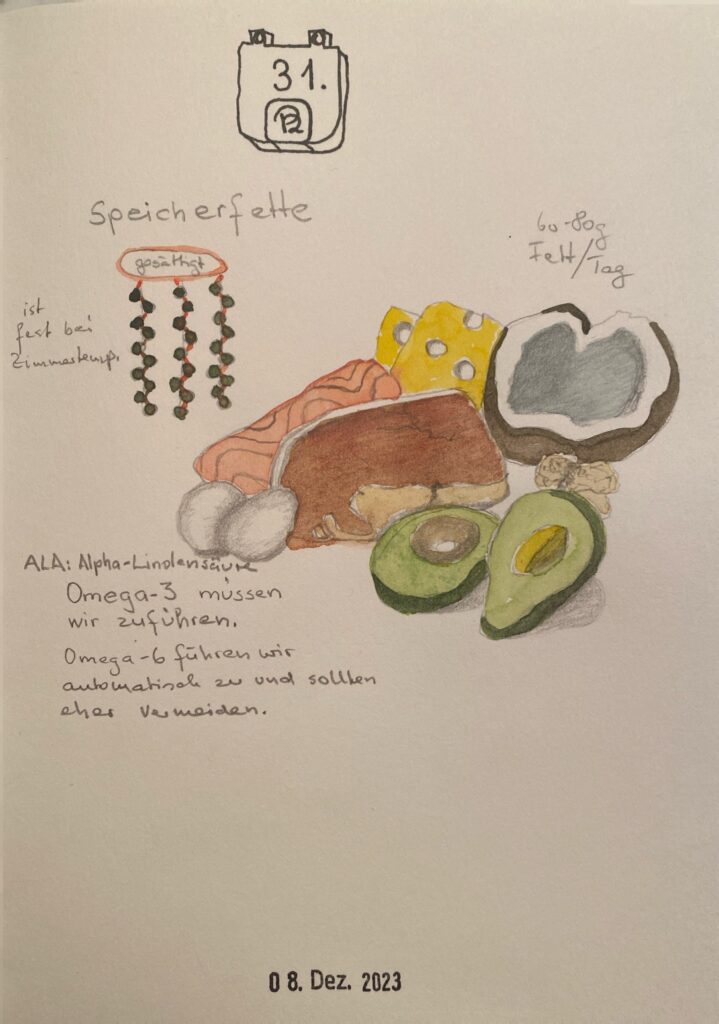 31.
12
Speicherfette
60-80g
Fett/Tag
gesättigt
ist
fest bei
Zimmertemp.
ALA: Alpha-Linolensäure
Omega-3 müssen
wir zuführen.
Omega-6 führen wir
automatisch zu und sollten
eher vermeiden.
08. Dez. 2023